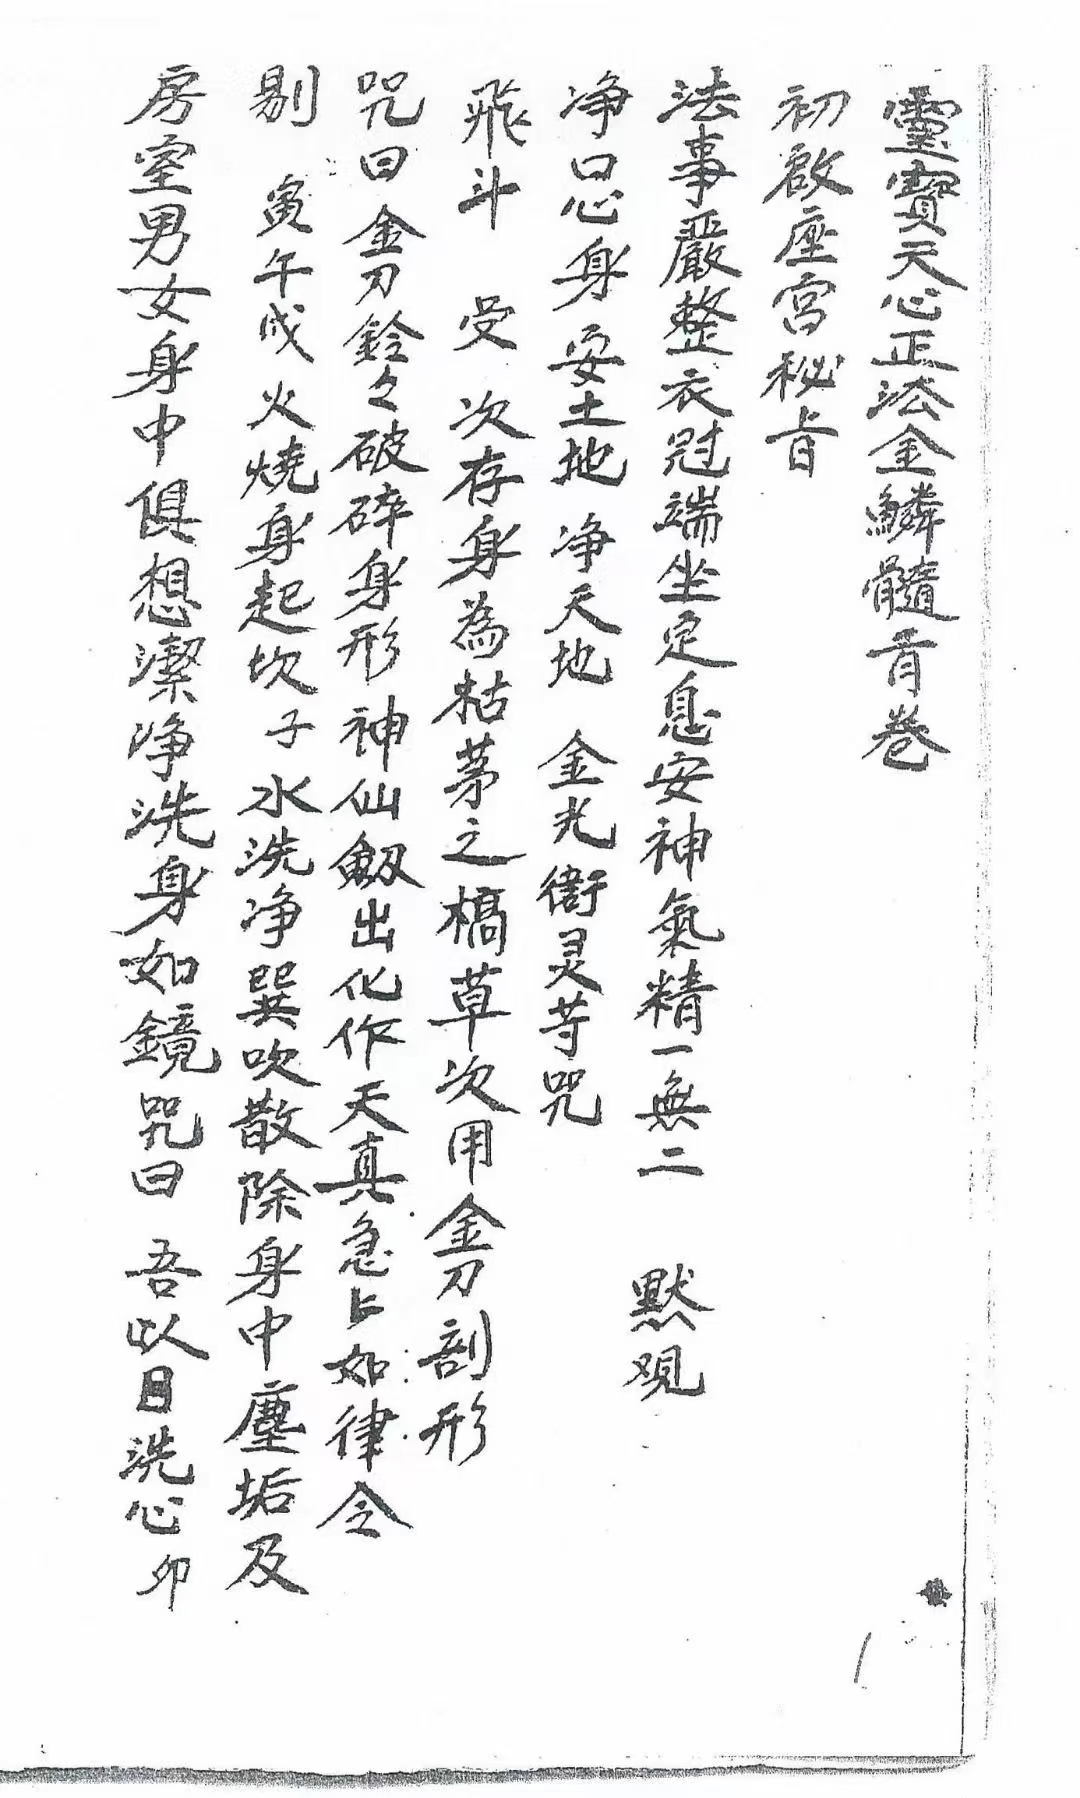 靈寶天心正法金鱗髓首卷
初啟座宮秘旨
法事嚴整衣冠端坐定息安神氣精一無二 默观
净口心身 安土地 净天地 金光衛灵等咒
飛斗 受 次存身為枯茅之槁草次用金刀剖形
咒曰 金刀鈴々破碎身形神仙劔出化作天真急上如律令
剔 寅午戌火燒身起坎子水洗净巽吹散除身中塵垢及
房室男女身中俱想潔净洗身如鏡咒曰 吾以日洗心卯
1